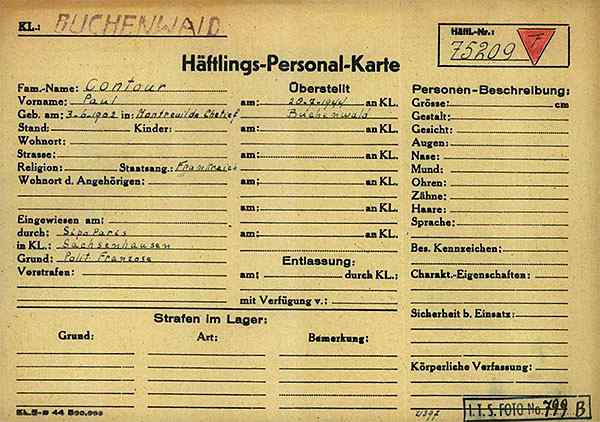 KL.: BUCHENWALD
Häftl.-Nr.:
75209 F
Häftlings-Personal-Karte
Fam.-Name: Contour
Vorname: Paul
Geb. am: 3-6-1902 in:
Stand: Kinder:
Wohnort:
Strasse:
Religion: Staatsang.: Frankreich
Wohnort d. Angehörigen:
Eingewiesen am:
durch: Sipo Paris
in KL.: Sachsenhausen
Grund: Polit Franzose
Vorstrafen:
Überstellt
am: an KL.
Buchenwald
am: an KL.
am: an KL.
am: an KL.
am: an KL.
am: an KL.
Entlassung:
am: durch KL.:
mit Verfügung v.:
Personen-Beschreibung:
Grösse: cm
Gestalt:
Gesicht:
Augen:
Nase:
Mund:
Ohren:
Zähne:
Haare:
Sprache:
Bes. Kennzeichen:
Charakt.-Eigenschaften:
Sicherheit b. Einsatz:
Körperliche Verfassung:
Strafen im Lager:
Grund: Art: Bemerkung:
I.T.S. FOTO No. 799 B